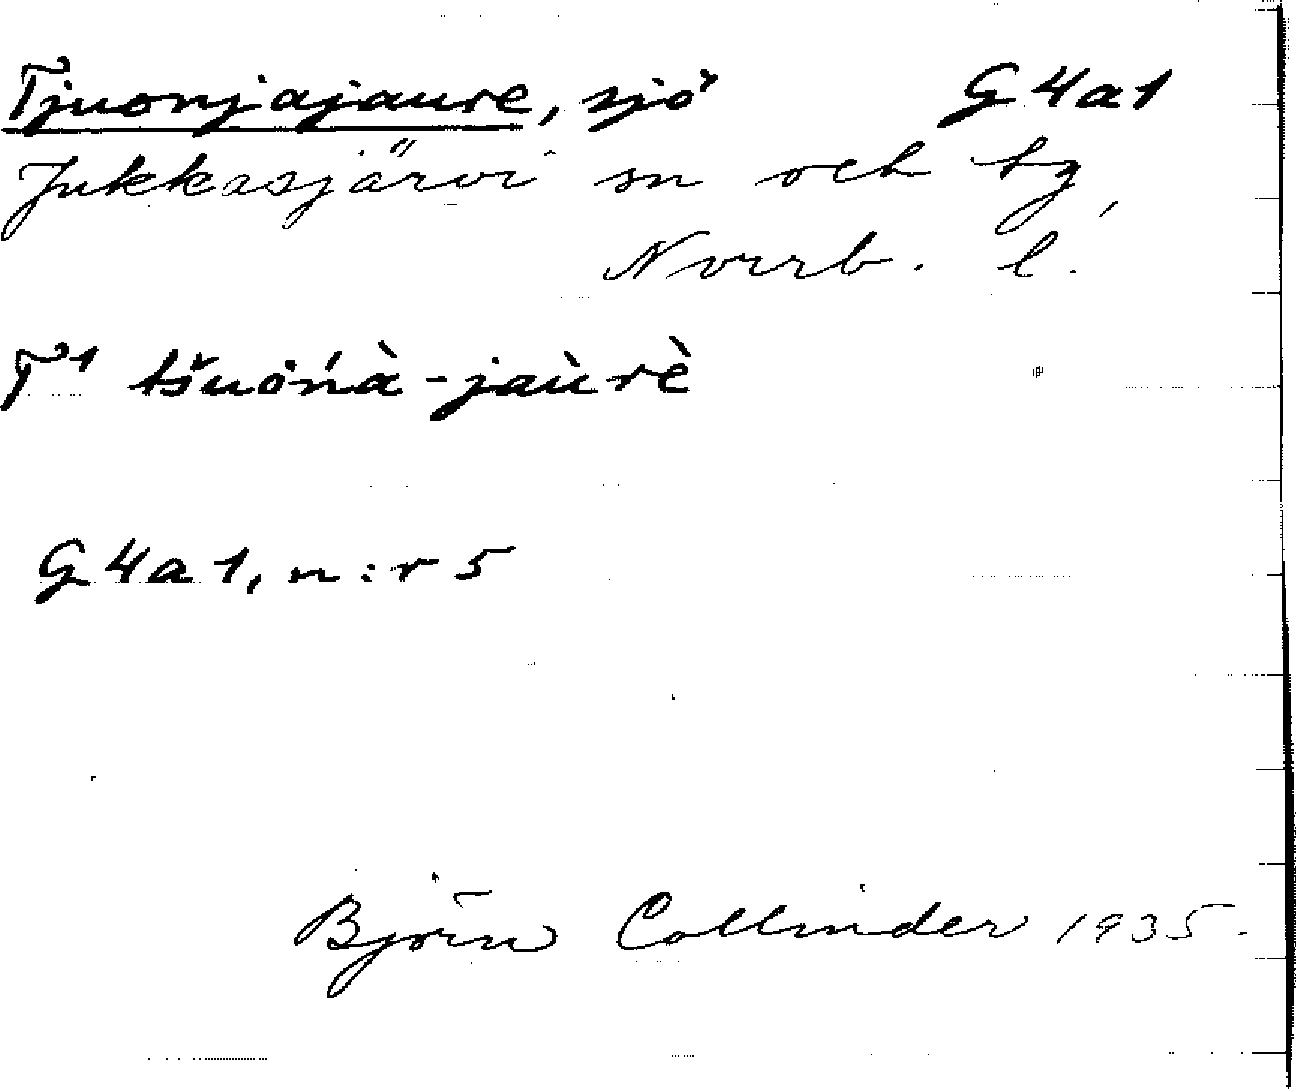 Tjuonjajaure, sjö G4a1
Jukkasjärvi sn och tg,
Norrb. l.
T1 tšuǒńà-jaùrè
G4a1, n:r 5
Björn Collinder 1935.